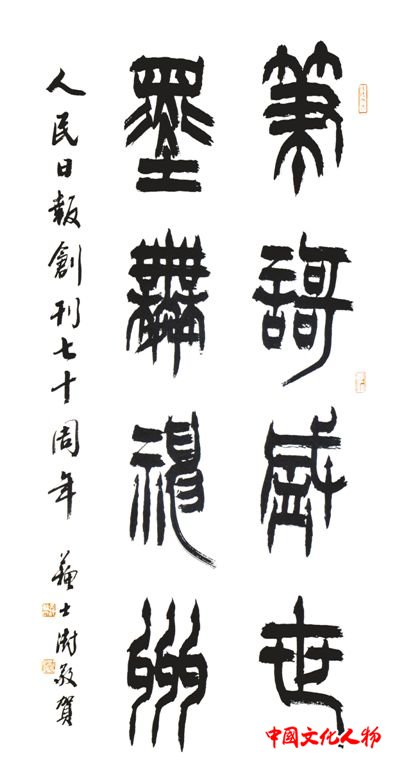 筆謌盛世
墨舞神州
人民日報創刊七十周年 蘇士澍敬賀
中國文化人物